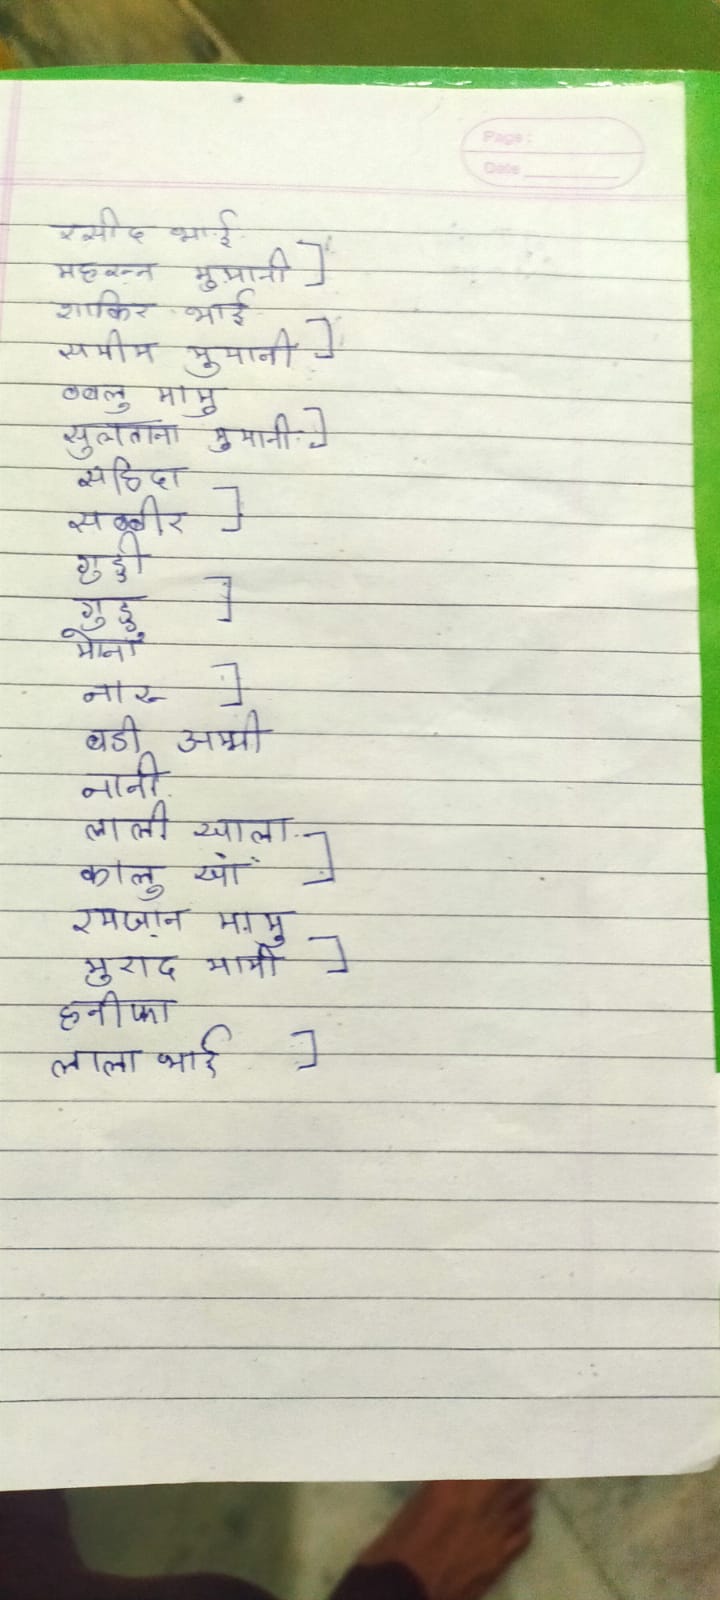 Page :
Date
रसीद भाई
महरून मुमानी
शाकिर भाई
समीम मुमानी
बबलु मामु
सुलताना मुमानी
सहिदा
सब्बीर
गुड्डी
गुड्डु
मोना
नारू
बडी अम्मी
नानी
लाली खाला
कालु खाँ
रमजान मामु
मुराद मामी
हनीफा
लाला भाई